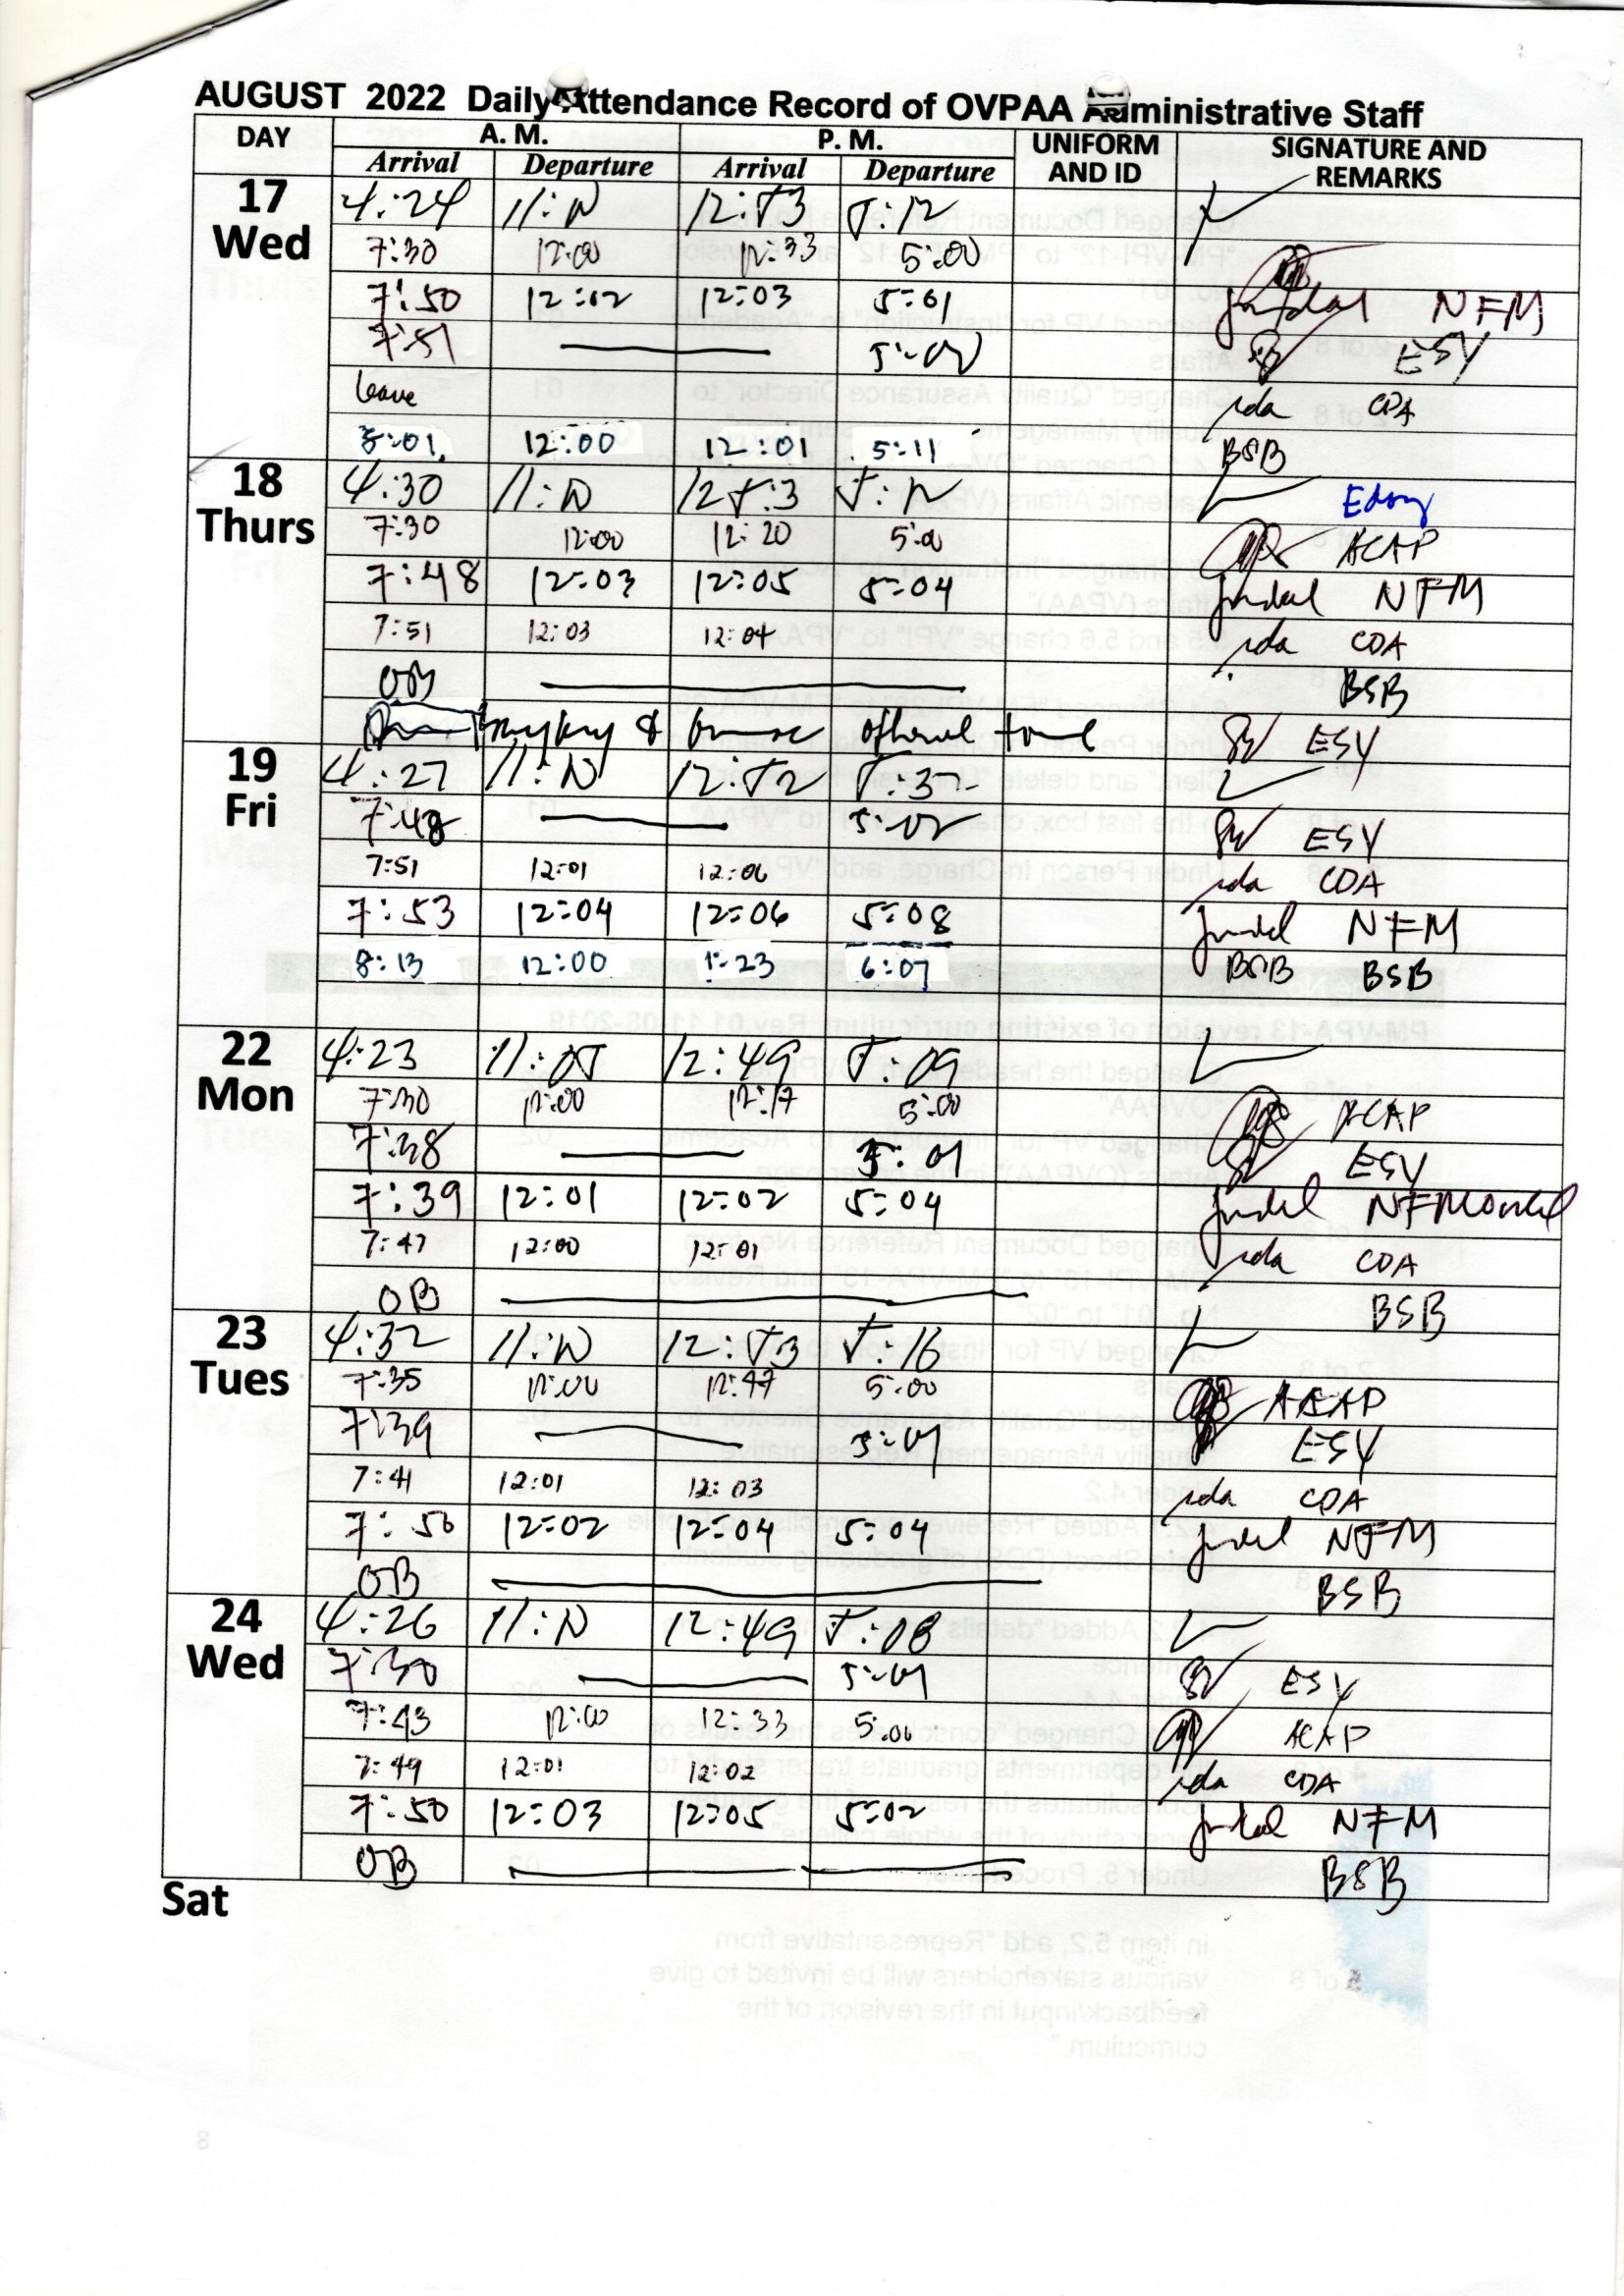 AUGUST 2022 Daily Attendance Record of OVPAA Administrative Staff
DAY A. M. P. M. UNIFORM AND ID SIGNATURE AND REMARKS
Arrival Departure Arrival Departure
17 Wed
4:24 11:N 12:53 5:12
7:30 12:00 12:33 5:00
7:50 12:02 12:03 5:01 NFM
7:51 ESY
leave CDA
8:01 12:00 12:01 5:11 BSB
18 Thurs
4:30 11:N
7:30 12:00 12:20 5:00 ACAP
7:48 12:03 12:05 5:04 NFM
7:51 12:03 12:04 CDA
OB BSB
ESY
19 Fri
4:27 11:N 12:52 5:32
7:48 5:02 ESY
7:51 12:01 12:06 CDA
7:53 12:04 12:06 5:08 NFM
8:13 12:00 1:23 6:07 BSB BSB
22 Mon
4:23 11:05 12:49 5:09
7:30 12:00 12:17 5:00 ACAP
7:38 5:01 ESY
7:39 12:01 12:02 5:04
7:47 12:00 12:01 CDA
OB BSB
23 Tues
4:32 11:N 12:53 5:16
7:35 12:00 12:47 5:00 ACAP
7:39 5:01 ESY
7:41 12:01 12:03 CDA
7:50 12:02 12:04 5:04 NFM
OB BSB
24 Wed
4:26 11:N 12:49 5:08
7:30 5:01 ESY
7:43 12:00 12:33 5:00 ACAP
7:49 12:01 12:02 CDA
7:50 12:03 12:05 5:02 NFM
OB BSB
Sat